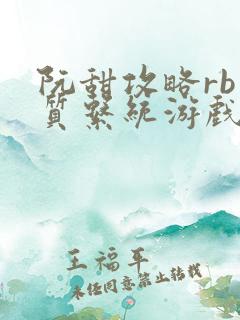 阮甜攻略rb
质系统游戏
王福平
未经同意禁止转载